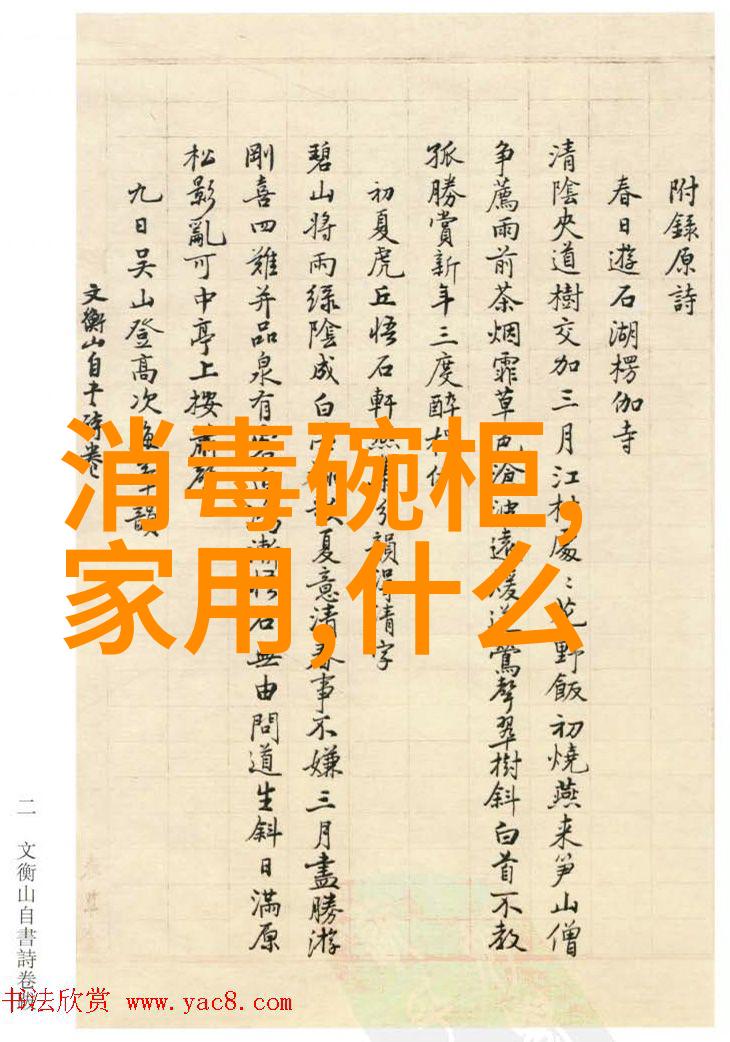 附錄原詩
春日遊石湖楞伽寺
清陰夾道樹交加三月江村處〻花野飯初燒燕来笋山僧
争薦雨前茶烟霏草色
遠
鶯聲翠樹斜白首不教
孤勝賞新年三度醉
初夏虎丘悟石軒
韻得清字
碧山将雨緑陰成白
夏意清春事不嫌三月盡勝游
剛喜四難并品泉有
石無由問道生斜日滿原
松影亂可中亭上
九日吴山登高次
韻
文衡山自书诗卷
消毒碗柜,
家用,什么
二 文衡山自書詩卷跋
书法欣赏 www.yac8.com